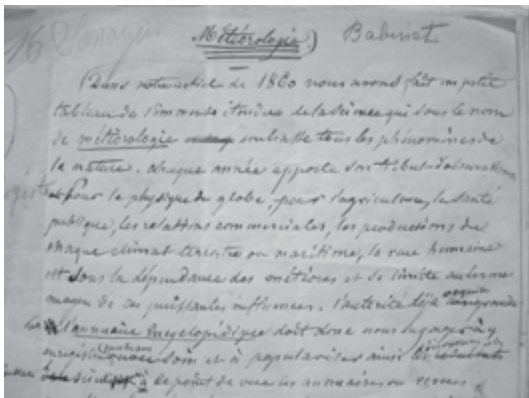 16
Météorologie Babinet
(Dans notre article de 1860 nous avons fait un petit
tableau de l'immense étendue de la science qui sous le nom
de météorologie embrasse tous les phénomènes de
la nature. Chaque année apporte son tribut d'observations
Pour la physique du globe, pour l'agriculture, la santé
publique, les relations commerciales, les productions de
chaque climat terrestre ou maritime, la race humaine
est sous la dépendance des météores et se limite au terme
moyen de ces puissantes influences. L'autorité déjà
l'annuaire Encyclopédique doit donc nous engager à y
soin et à populariser ainsi les
à ce point de vue les annuaires ou revues